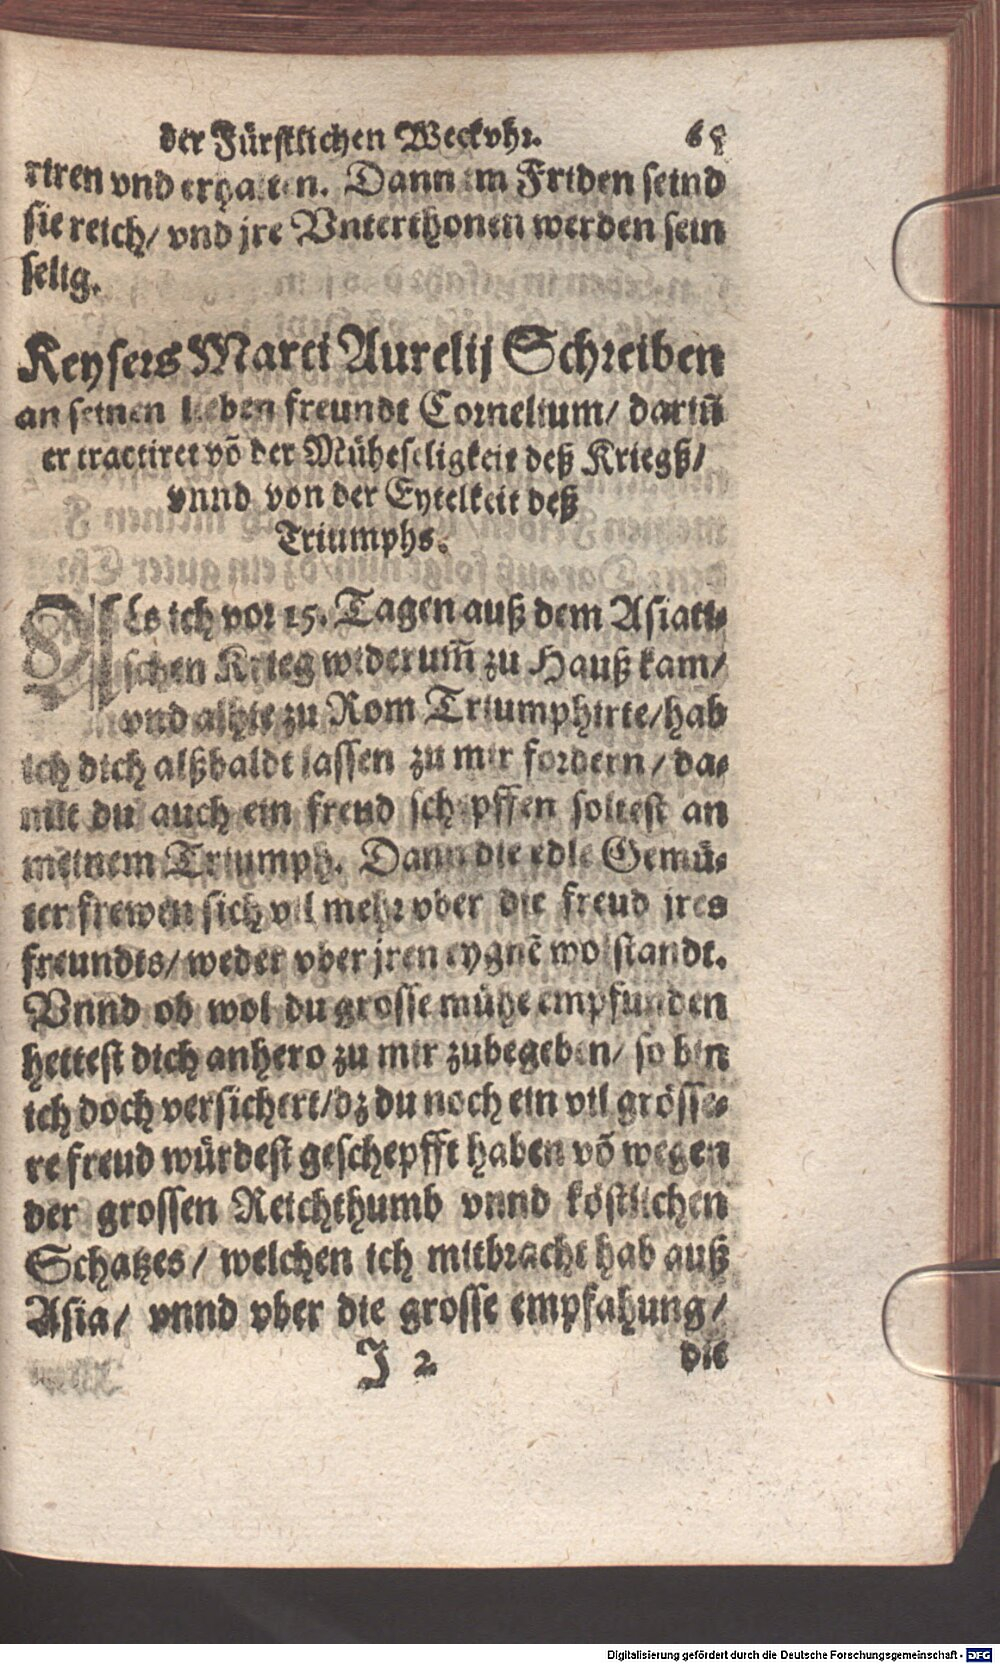 der Fürstlichen Weckvhr. 68
riren vnd erhalten. Dann im Friden seind
sie reich/ vnd jre Vnterthonen werden sein
selig.
Keysers Marci Aurelij Schreiben
an seinen lieben freundt Cornelium/ dariñ
er tractiret võ der Müheseligkeit deß Kriegß/
vnnd von der Eytelkeit deß
Triumphs.
Als ich vor 15. Tagen auß dem Asiati-
schen Krieg widerum̃ zu Hauß kam/
vnd alhie zu Rom Triumphirte/ hab
ich dich alßbaldt lassen zu mir fordern/ da-
mit du auch ein freud schepffen soltest an
meinem Triumph. Dann die edle Gemü-
ter frewen sich vil mehr vber die freud jres
freundts/ weder vber jren eygnẽ wolstandt.
Vnnd ob wol du grosse mühe empfunden
hettest dich anhero zu mir zubegeben/ so bin
ich doch versichert/ dz du noch ein vil grösse-
re freud würdest geschepfft haben võ wegen
der grossen Reichthumb vnnd köstlichen
Schatzes/ welchen ich mitbracht hab auß
Asia/ vnnd vber die grosse empfahung/
J 2 die
Digitalisierung gefördert durch die Deutsche Forschungsgemeinschaft - DFG